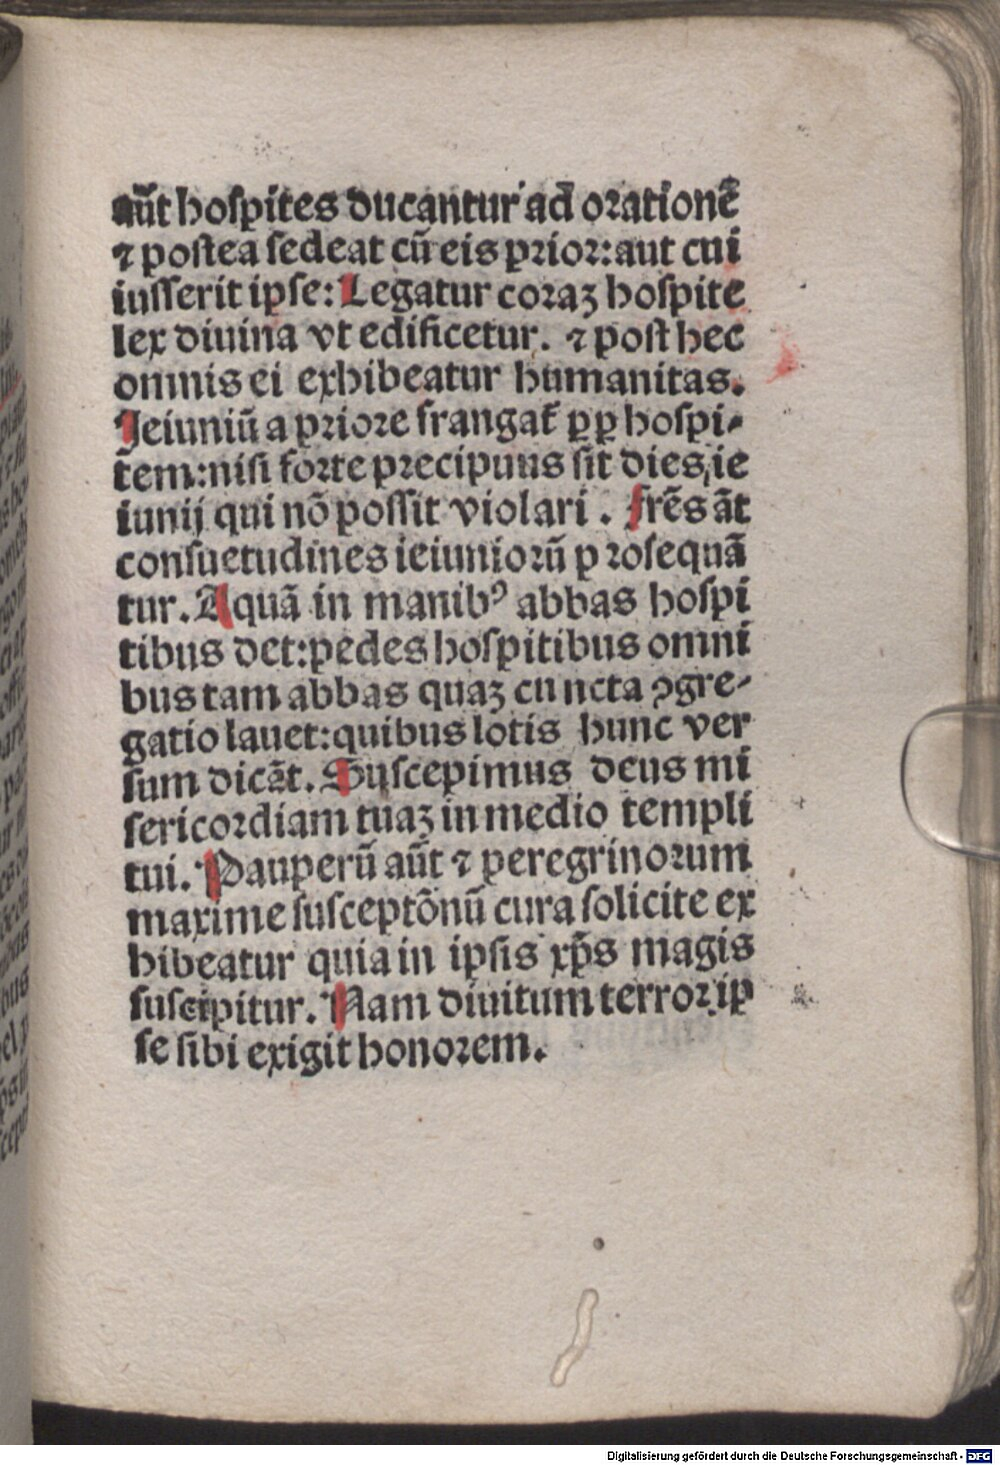 aūt hoſpites ducantur ad orationē
⁊ poſtea ſedeat cū eis prior: aut cui
iuſſerit ipſe: Legatur coraꝫ hoſpite
lex diuina vt edificetur. ⁊ poſt hec
omnis ei exhibeatur humanitas.
Ieiuniū a priore frangat̄ ꝓp hoſpi-
tem: niſi forte precipuus ſit dies, ie
iunij qui nō poſſit violari. frēs āt
conſuetudines ieiuniorū proſequā
tur. Aquā in manibꝰ abbas hoſpi
tibus det: pedes hoſpitibus omni
bus tam abbas quaꝫ cuncta ꝯgre-
gatio lauet: quibus lotis hunc ver
ſum dicāt. Suſcepimus deus mi
ſericordiam tuaꝫ in medio templi
tui. Pauperū aūt ⁊ peregrinorum
maxime ſuſceptōnū cura ſolicite ex
hibeatur quia in ipſis xp̄s magis
ſuſcipitur. Nam diuitum terror ip
ſe ſibi exigit honorem.
Digitalisierung gefördert durch die Deutsche Forschungsgemeinschaft - DFG